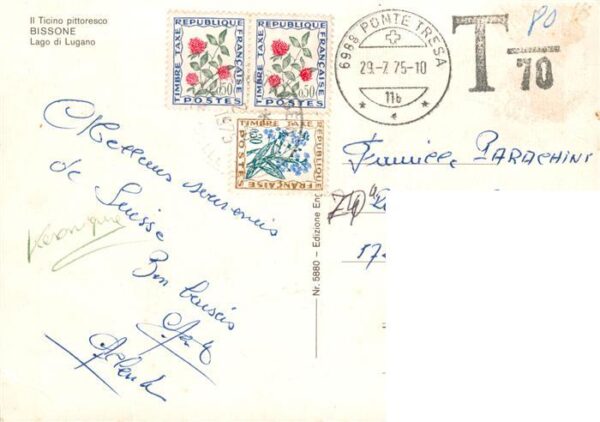 Il Ticino pittoresco
BISSONE
Lago di Lugano
REPUBLIQUE FRANÇAISE
TIMBRE TAXE
POSTES
0,50
REPUBLIQUE FRANÇAISE
TIMBRE TAXE
POSTES
0,50
TIMBRE TAXE
REPUBLIQUE FRANÇAISE
POSTES
6989 PONTE TRESA
29.-7.75-10
11b
T
70
80
Famille PARACHINI
17
Meilleurs souvenirs
de Suisse
Bon baisers
Véronique
Nr. 5880 – Edizione